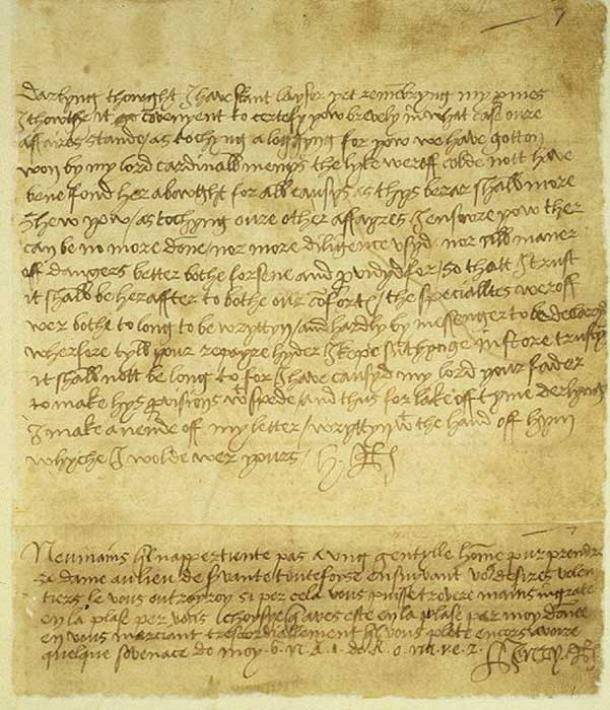 7
Darlyng thowght I have skant laysor yet remembryng my promes
I thowthe it go covenyent to certefy yow brevely in what case oure
affaires stande / as tochyng a loggyng for yow we have gotton
won by my lord cardinalls menys the lyke weroff colde nott have
bene fond her abowghte for all causys as thys berar shall more
shew yow / as tochyng oure other affayres I ensure yow ther
can be no more done / nor more diligence usyd nor all maner
off dangers better bothe forsene and pvydyd for / so thatt I trust
it shalbe heraffter to bothe our coforte / the specialltes weroff
wer bothe to long to be wryttyn / and hardly by messenger to be declaryd
wherfore tyll your repayre hyder I kepe suthynge in store trustyng
it shall nott be long to for I have causyd my lord your fader
to make hys pvisions w spede / and thus for lake off tyme derlyng
I make an ende off my letter / wryttyn w the hand off hym
whyche I wolde wer yours H. R
Neumains quil nappertiente pas a ung gentylle home pur prendre
sa dame au lieu de svante toutefoyse ensuivant vos desires volen
tiers le vous outroyroy si per cela vous puisse trovere mains ingrate
en la plase per vous choysye q aves este en la plase par moy donee
en vous merciant trescordiallement quil vous plete encors avoire
quelque sovenace de moy. 6. n. A. 1. de A. o. na. ve. z. Henry. R